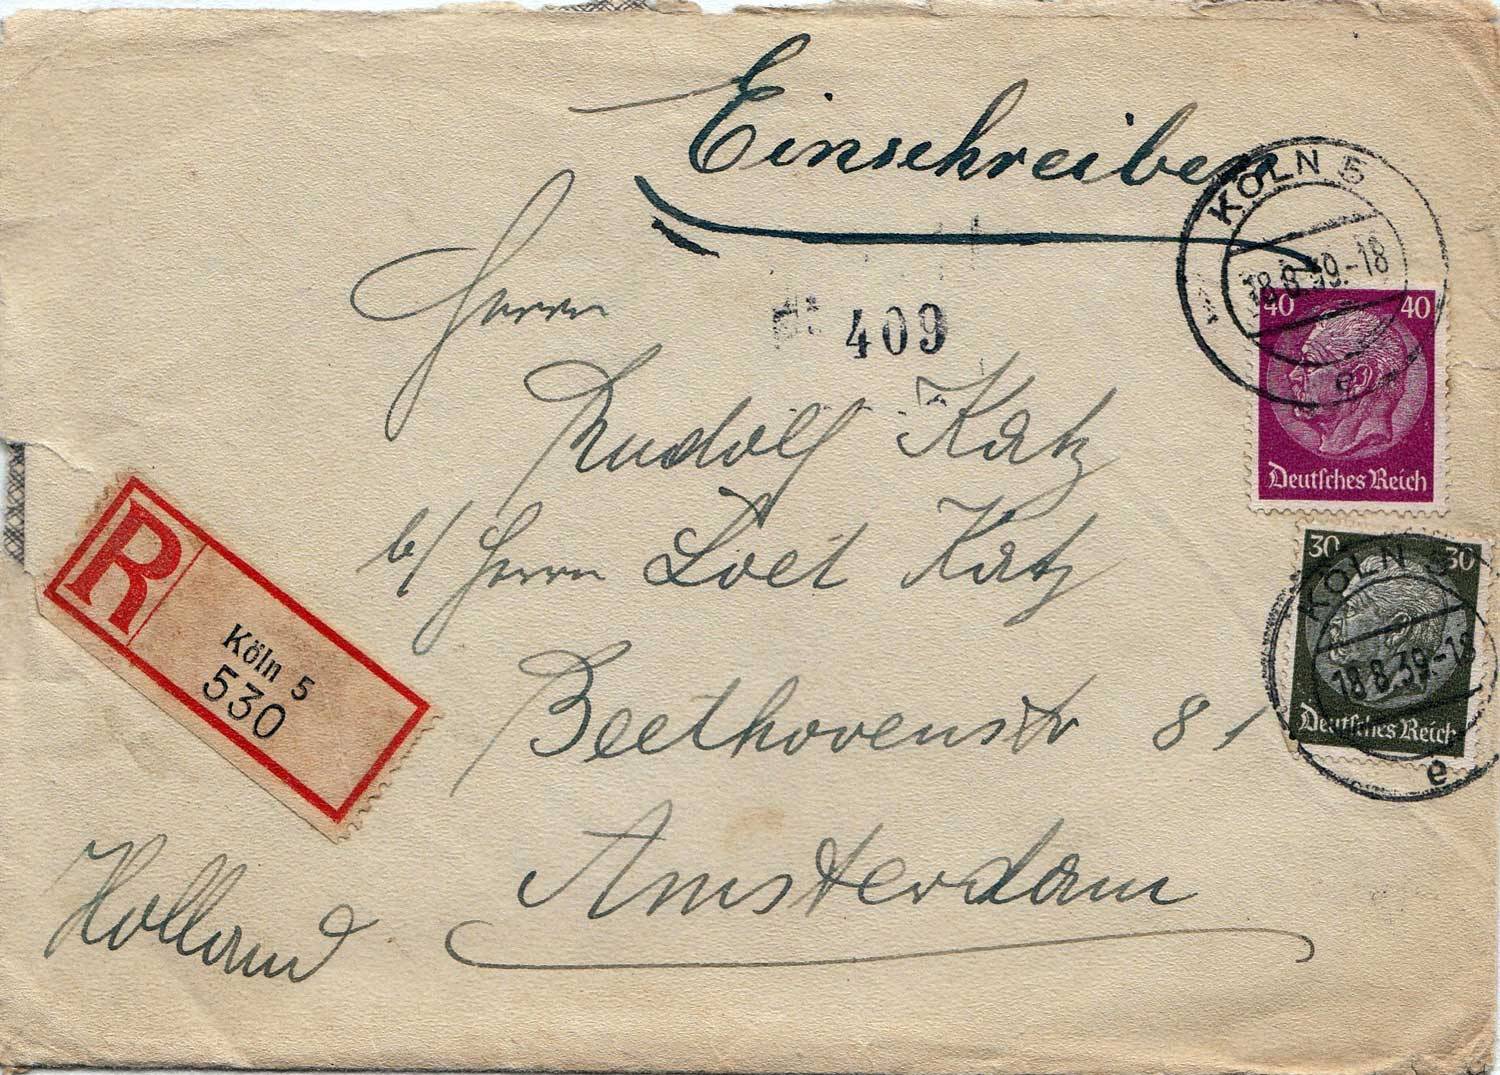 Einschreiben
KÖLN 5
18.8.39.-18
e
40 40
Deutsches Reich
Herrn
409
Rudolf Katz
b/ Herrn Loet Katz
Beethovenstr 81
Amsterdam
Holland
R
Köln 5
530
30 30
KÖLN 5
18.8.39.-18
Deutsches Reich
e